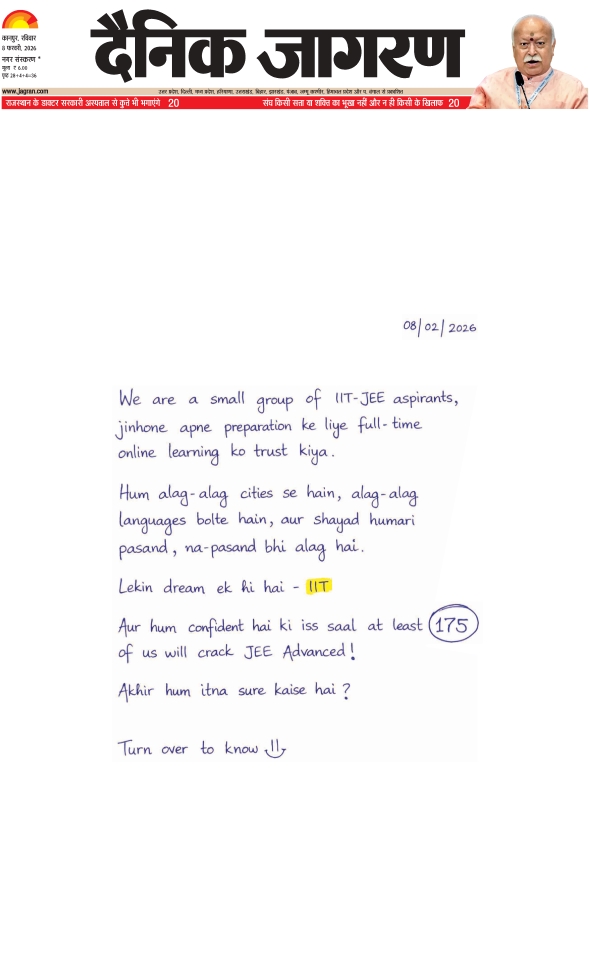 कानपुर, रविवार
8 फरवरी, 2026
नगर संस्करण *
मूल्य ₹ 6.00
पृष्ठ 28+4+4=36
दैनिक जागरण
www.jagran.com
उत्तर प्रदेश, दिल्ली, मध्य प्रदेश, हरियाणा, उत्तराखंड, बिहार, झारखंड, पंजाब, जम्मू कश्मीर, हिमाचल प्रदेश और प. बंगाल से प्रकाशित
राजस्थान के डाक्टर सरकारी अस्पताल से कुत्ते भी भगाएंगे 20
संघ किसी सत्ता या शक्ति का भूखा नहीं और न ही किसी के खिलाफ 20
08/02/2026
We are a small group of IIT-JEE aspirants,
jinhone apne preparation ke liye full-time
online learning ko trust kiya.
Hum alag-alag cities se hain, alag-alag
languages bolte hain, aur shayad humari
pasand, na-pasand bhi alag hai.
Lekin dream ek hi hai - IIT
Aur hum confident hai ki iss saal at least 175
of us will crack JEE Advanced!
Akhir hum itna sure kaise hai?
Turn over to know